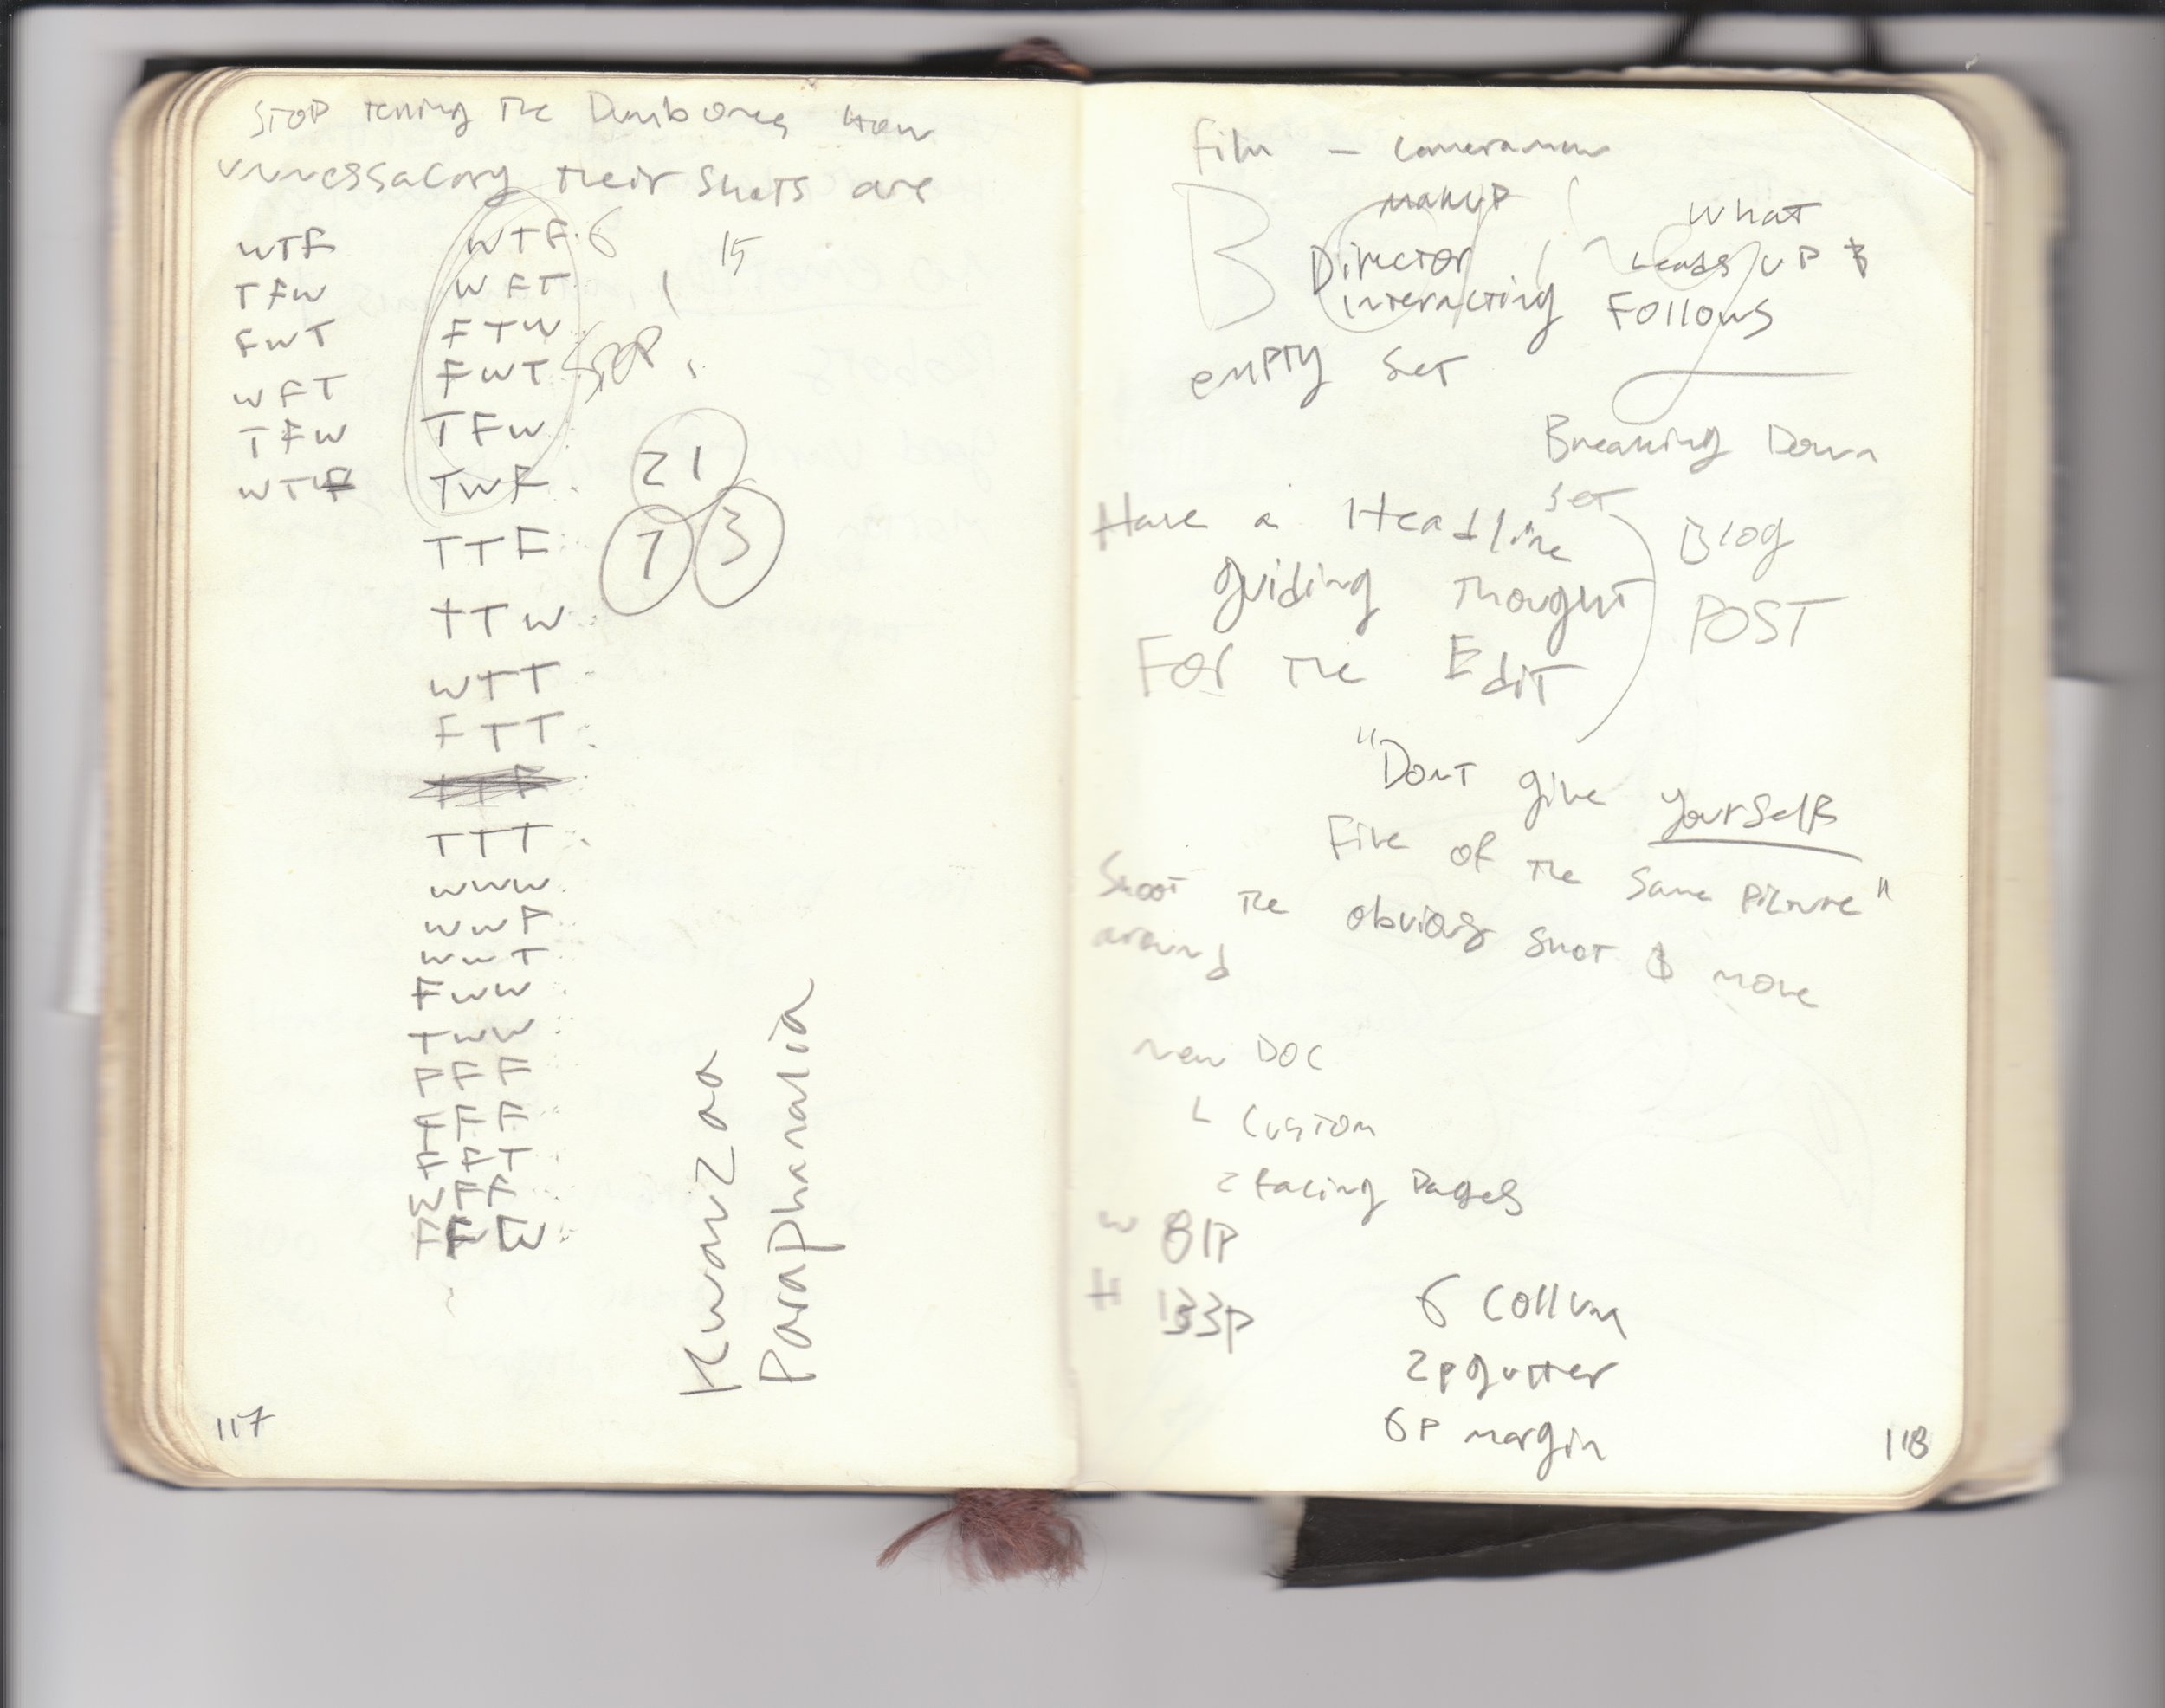 STOP Telling The Dumb ones How
unnessacary their shots are
WTF
TFW
FWT
WFT
TFW
WTF
WTF. 6
WFT
FTW
FWT STOP
TFW
TWF
TTF
TTW
WTT
FTT
TTT
WWW
WWF
WWT
FWW
TWW
FFF
FFT
WFF
FFW
15
21
7 3
Kwanzaa
Paraphanalia
117
film - cameraman
makup
Director
interacting
empty set
What
Leads up &
Follows
Breaking Down
set
Have a Headline
guiding thought
For the Edit
Blog
POST
"Dont give yourself
Five of the same picture"
Shoot the obvious shot & move
around
new DOC
Custom
2 facing pages
W 81P
H 133P
6 Collum
2p gutter
6P margin
118